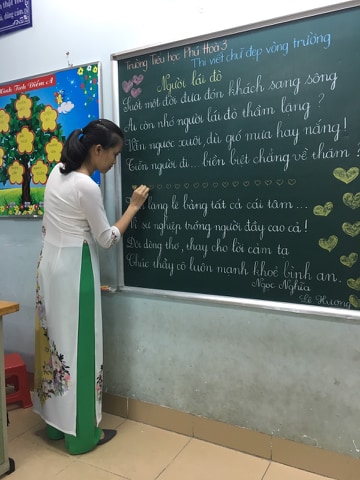 Trường Tiểu học Phú Hoà 3
Thi viết chữ đẹp vòng trường
Người lái đò
Suốt một đời đưa đón khách sang sông
Ai còn nhớ người lái đò thầm lặng ?
Vẫn ngược xuôi, dù gió mưa hay nắng !
Tiễn người đi... biền biệt chẳng về thăm ?
lặng lẽ bằng tất cả cái tâm ...
Vì sự nghiệp trồng người đầy cao cả !
Đời dâng thơ, thay cho lời cảm tạ
Chúc thầy cô luôn mạnh khoẻ bình an.
Ngọc Nghĩa
Lê Hương
Mình Tính Điểm A